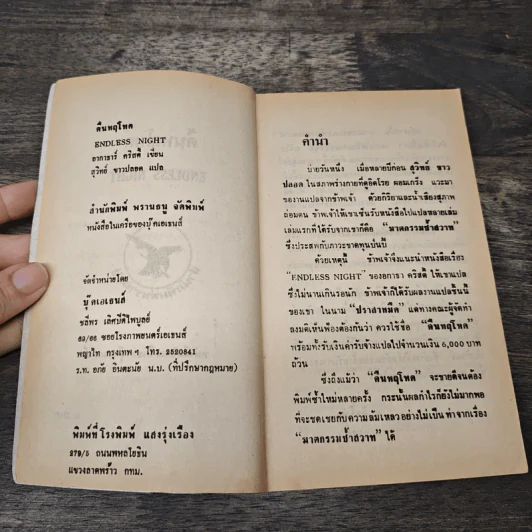 คืนหฤโหด
ENDLESS NIGHT
อากาธาร์ คริสตี้ เขียน
สุวิทย์ ขาวปลอด แปล
สำนักพิมพ์ พรานธนู จัดพิมพ์
หนังสือในเครือของบุ๊คเอเธนส์
จัดจำหน่ายโดย
บุ๊คเอเธนส์
ชลีพร เลิศปิติไพบูลย์
69/66 ซอยโรงภาพยนตร์เอเธนส์
พญาไท กรุงเทพ ฯ โทร. 2520841
ร.ท. อภัย อินตะนัย น.บ. (ที่ปรึกษากฎหมาย)
พิมพ์ที่ โรงพิมพ์ แสงรุ่งเรือง
279/5 ถนนพหลโยธิน
แขวงลาดพร้าว กทม.
คำนำ
บ่ายวันหนึ่ง เมื่อหลายปีก่อน สุวิทย์ ขาว
ปลอด ในสภาพร่างกายที่ดูอิดโรย ผอมเกร็ง แวะมา
ของานแปลจากข้าพเจ้า ด้วยกิริยาและน้ำเสียงสุภาพ
ถ่อมตน ข้าพเจ้าให้เขาเซ็นรับหนังสือไปแปลหลายเล่ม
เล่มแรกที่ได้รับจากเขาก็คือ “ฆาตกรรมซ้ำสวาท”
ซึ่งประสพกับภาวะขาดทุนบั่นปี้
ด้วยเหตุนี้ ข้าพเจ้าจึงแนะนำหนังสือเรื่อง
“ENDLESS NIGHT” ของอกาธา คริสตี้ ให้เขาแปล
ซึ่งไม่นานเกินรอนัก ข้าพเจ้าก็ได้รับผลงานแปลชิ้นนี้
ของเขา ในนาม “ปราสาทมืด” แต่ทางคณะผู้จัดทำ
ลงมติเห็นพ้องต้องกันว่า ควรใช้ชื่อ “คืนหฤโหด”
พร้อมทั้งรับเงินค่ารับจ้างแปลไปจำนวนเงิน 6,000 บาท
ถ้วน
ซึ่งถึงแม้ว่า “คืนหฤโหด” จะขายดีจนต้อง
พิมพ์ซ้ำใหม่หลายครั้ง กระนั้นผลกำไรก็ยังไม่มากพอ
ที่จะชดเชยกับความล้มเหลวอย่างไม่เป็นท่าจากเรื่อง
“ฆาตกรรมซ้ำสวาท” ได้